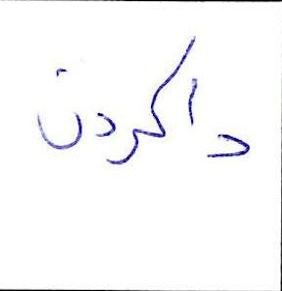 داکردن